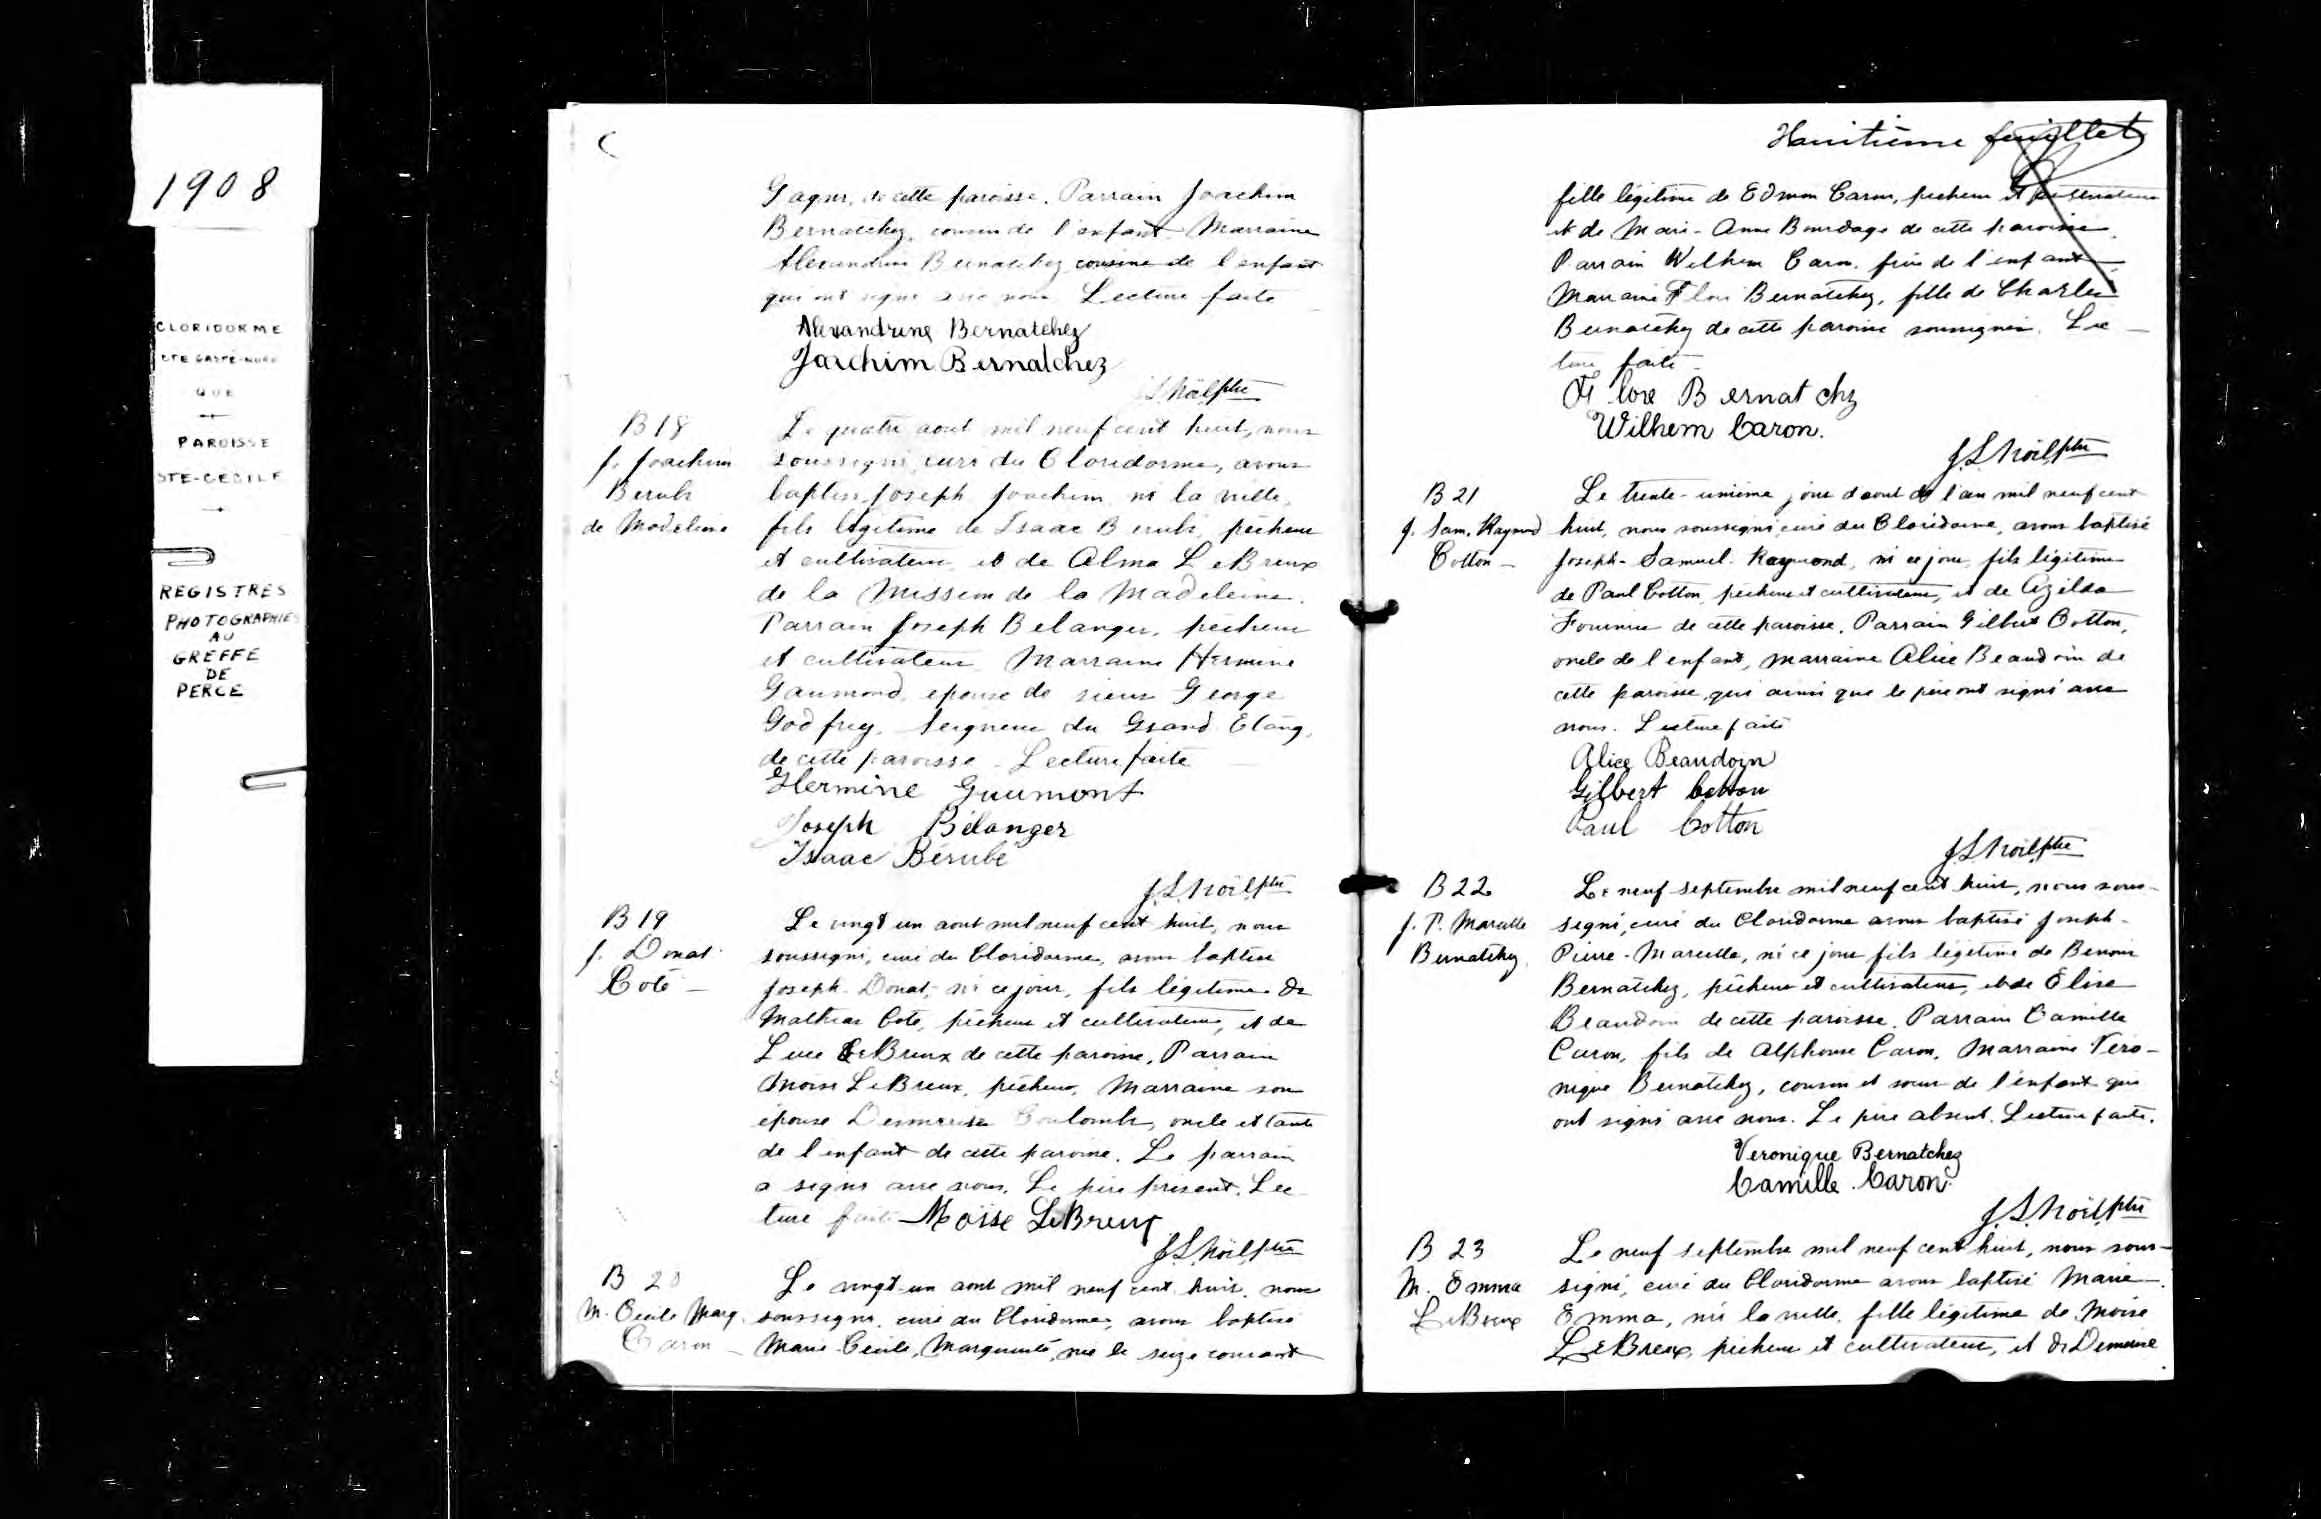 1908
CLORIDORME
CTE GASPÉ-NORD
QUE
PAROISSE
STE-CECILE
REGISTRES
PHOTOGRAPHIES
AU
GREFFE
DE
PERCE
Gagné, de cette paroisse. Parrain Joachim
Bernatchez, cousin de l'enfant. Marraine
Alexandrine Bernatchez cousine de l'enfant
qui ont signé avec nous. Lecture faite
Alexandrine Bernatchez
Joachim Bernatchez
J.L. Noël, ptre
B 18
J. Joachim
Berubé
de Madeleine
Le quatre aout mil neuf cent huit, nous
soussigné curé du Cloridorme, avons
baptisé Joseph Joachim né la veille,
fils légitime de Isaac Berubé, pêcheur
et cultivateur, et de Alma LeBreux
de la Mission de la Madeleine.
Parrain Joseph Belanger, pêcheur
et cultivateur. Marraine Hermine
Gaumond, epouse de sieur George
Godfrey, Seigneur du Grand Etang,
de cette paroisse - Lecture faite
Hermine Gaumont
Joseph Bélanger
Isaac Bérubé
J.L. Noël, ptre
B 19
J. Donat
Coté -
Le vingt un aout mil neuf cent huit, nous
soussigné, curé du Cloridorme, avons baptisé
Joseph-Donat, né ce jour, fils légitime de
Mathias Coté, pêcheur et cultivateur, et de
Luce LeBreux de cette paroisse, Parrain
Moise LeBreux, pêcheur, Marraine son
épouse Coulombe, oncle et tante
de l'enfant de cette paroisse. Le parrain
a signé avec nous. Le père présent. Lec
ture faite - Moïse LeBreux
J.L. Noël, ptre
B 20
M. Cecile Marg.
Caron -
Le vingt-un aout mil neuf cent huit, nous
soussigné, curé du Cloridorme, avons baptisé
Marie-Cécile, Marguerite, née le seize courant
Hauitième feuillet
fille légitime de Edmon Caron, pêcheur et cultivateur
et de Marie-Anne Bourdage de cette paroisse.
Parrain Wilhem Caron, frère de l'enfant,
Marraine Flore Bernatchez, fille de Charles
Bernatchez de cette paroisse soussignés. Lec -
ture faite -
Flore Bernatchz
Wilhem Caron.
J.L. Noël, ptre
B 21
J. Sam. Raymond
Cotton -
Le trente-unième jour d'aout de l'an mil neuf cent
huit, nous soussigné, curé du Cloridorme, avons baptisé
Joseph-Samuel-Raymond, né ce jour, fils légitime
de Paul Cotton, pêcheur et cultivateur, et de Azilda
Fournier de cette paroisse. Parrain Gilbert Cotton,
oncle de l'enfant, marraine Alice Beaudoin de
cette paroisse, qui ainsi que le père ont signé avec
nous. Lecture faite
Alice Beaudoin
Gilbert Cotton
Paul Cotton
J.L. Noël, ptre
B 22
J. P. Marcelle
Bernatchez
Le neuf septembre mil neuf cent huit, nous sous-
signé, curé du Cloridorme avons baptisé Joseph-
Pierre-Marcelle, né ce jour fils légitime de Benoni
Bernatchez, pêcheur et cultivateur, et de Elise
Beaudoin de cette paroisse. Parrain Camille
Caron, fils de Alphonse Caron. Marraine Véro-
nique Bernatchez, cousin et soeur de l'enfant qui
ont signé avec nous. Le père absent. Lecture faite.
Veronique Bernatchez
Camille Caron.
J.L. Noël, ptre
B 23
M. Emma
LeBreux
Le neuf septembre mil neuf cent huit, nous sous-
signé, curé du Cloridorme avons baptisé Marie-
Emma, née la veille, fille légitime de Moïse
LeBreux, pêcheur et cultivateur, et de Demerise